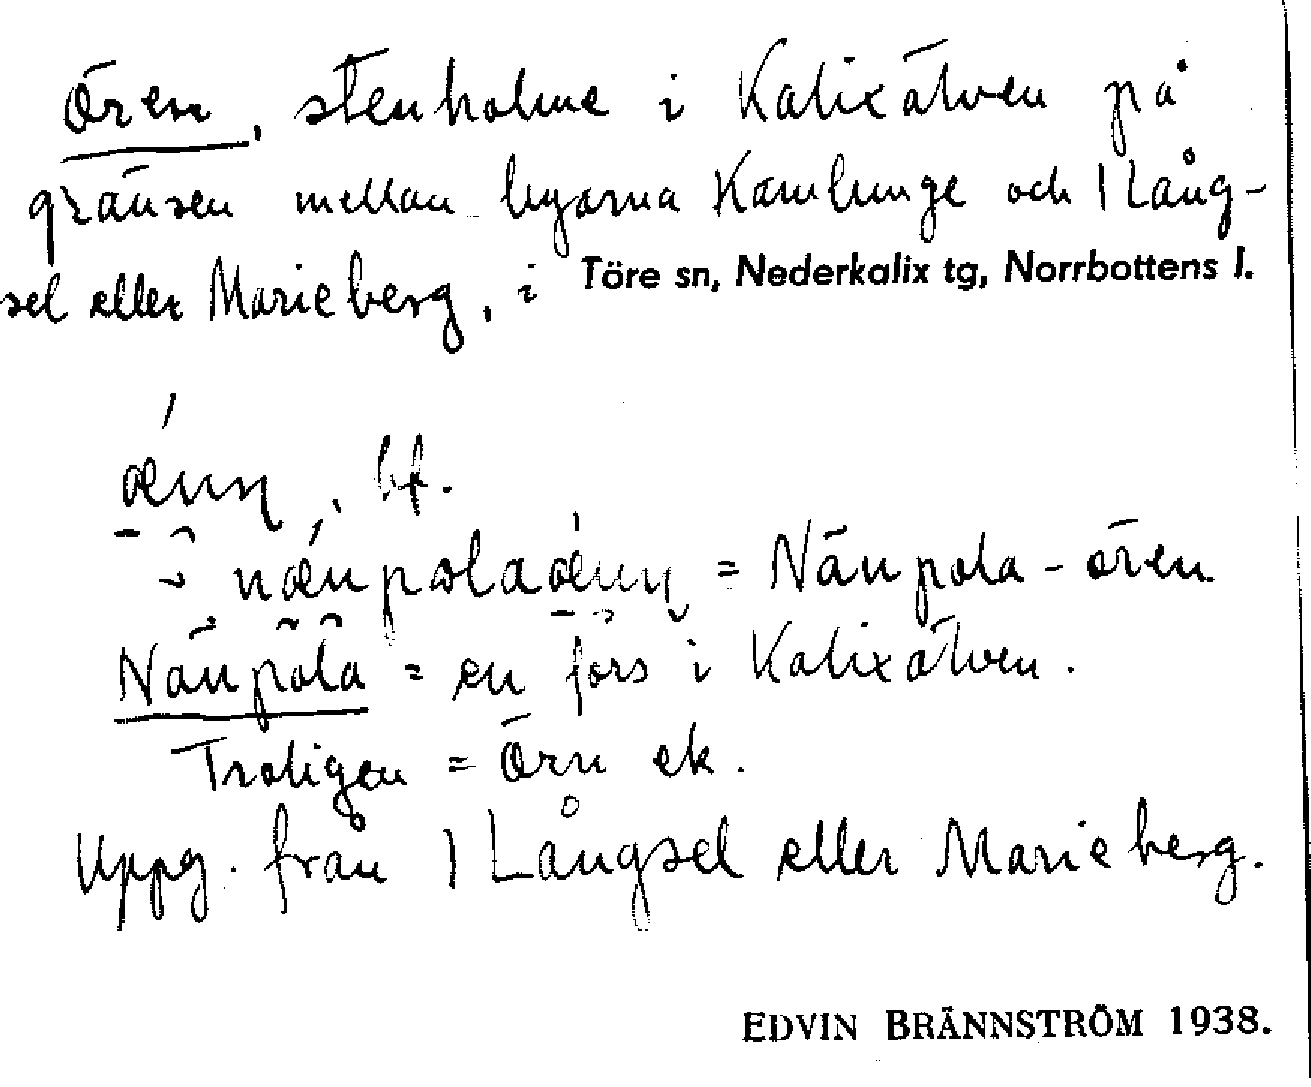 Ören, stenholme i Kalixälven på
gränsen mellan byarna Kamlunge och 1 Lång-
sel eller Marieberg, i Töre sn, Nederkalix tg, Norrbottens l.
, bf.
= Nänpola-ören
Nänpola = en fors i Kalixälven.
Troligen = Örn ek.
Uppg. från 1 Långsel eller Marieberg.
EDVIN BRÄNNSTRÖM 1938.